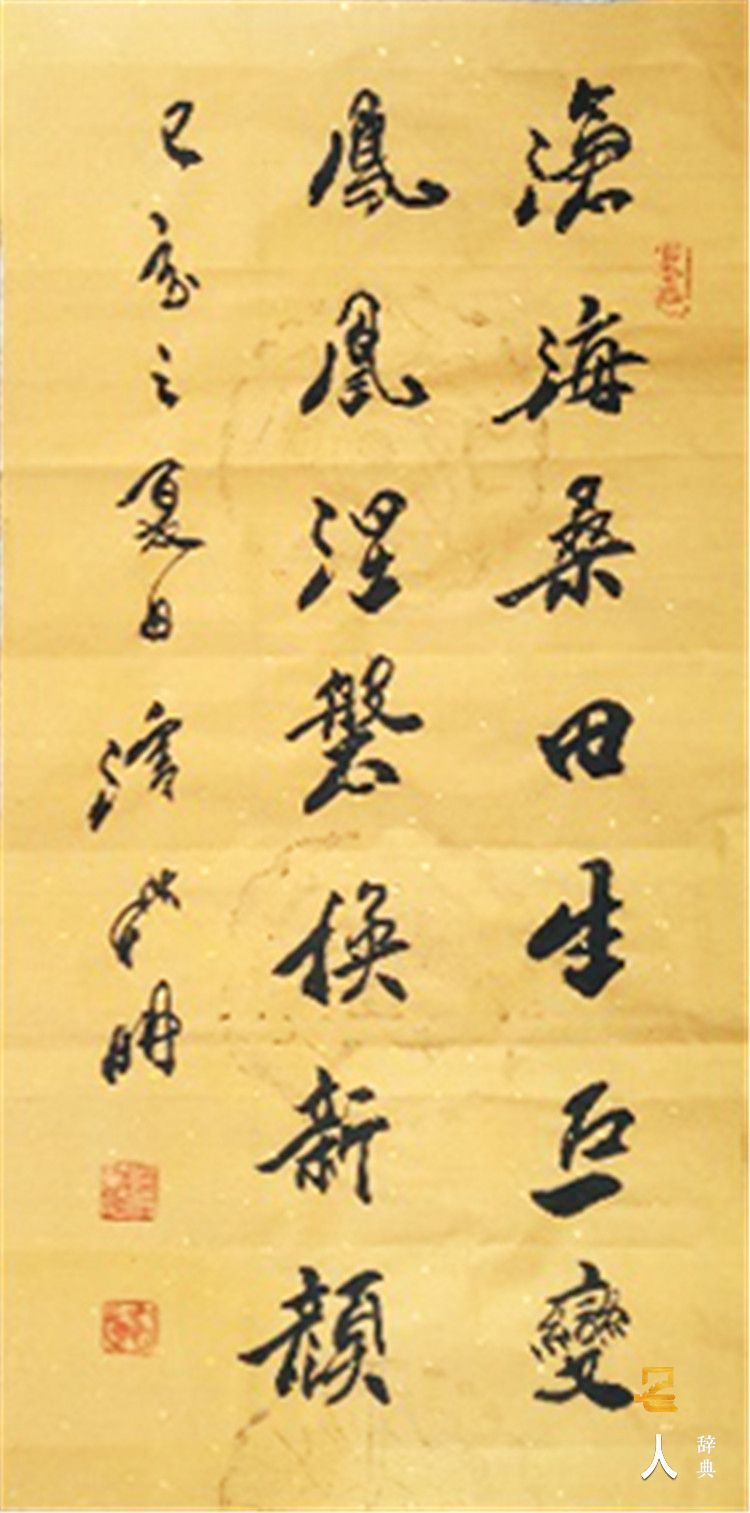 滄海桑田生巨變
鳳凰涅槃換新顏
己亥之夏日
名人辞典